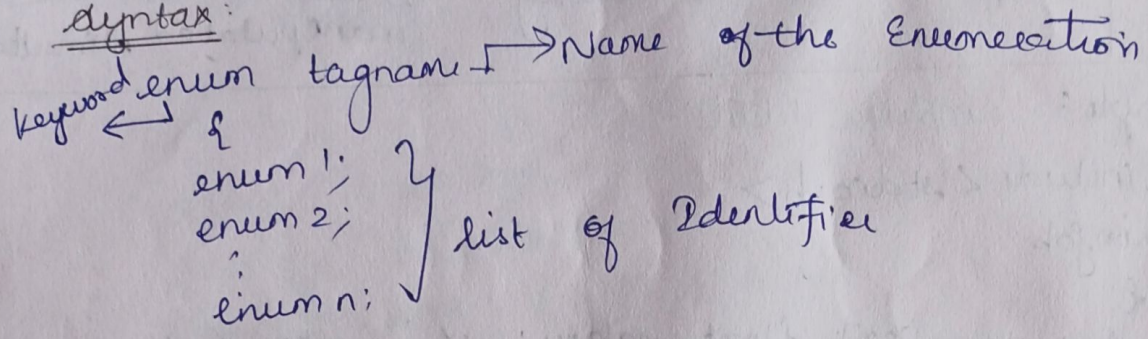 Syntax:
keyword enum tagname → Name of the Enumeration
{
enum 1;
enum 2;
:
enum n;
} list of Identifier